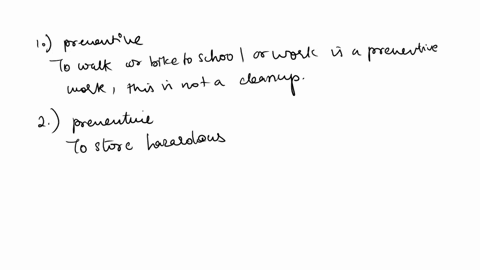 1.) preventive
To walk or bike to school or work is a preventive
work, this is not a cleanup.
2.) preventive
To store hazardous